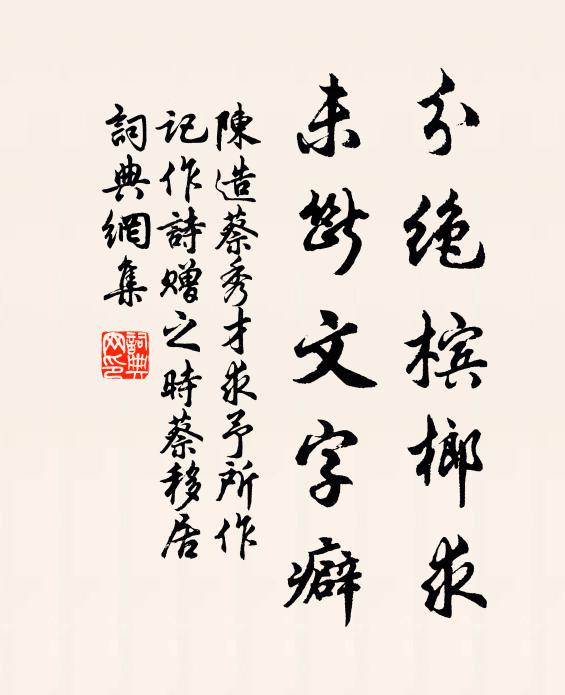 分绝槟榔求
未断文字癖
陳造蔡秀才求予所作
记作詩赠之時蔡移居
詞典網集
詞典
网印